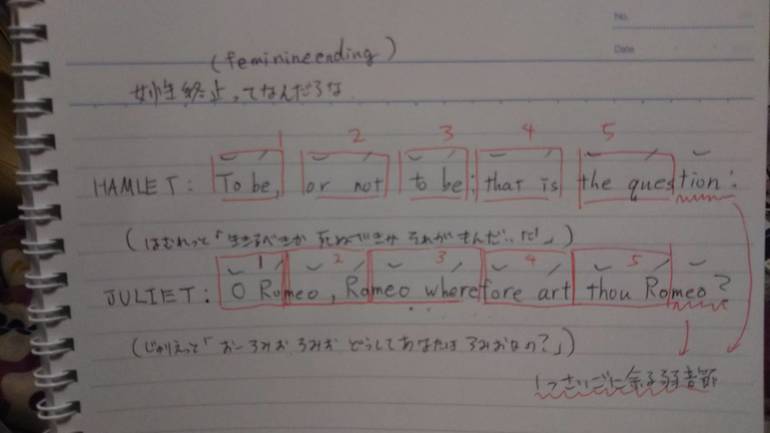 No.
Date
(feminine ending)
女性終止ってなんだろな
1 2 3 4 5
HAMLET: To be, or not to be; that is the question:
(はむれっと「生きるべきか 死ぬべきか それがもんだいだ」)
1 2 3 4 5
JULIET: O Romeo, Romeo wherefore art thou Romeo?
(じゅりえっと「おーろみお ろみお どうしてあなたは ろみおなの?」)
1つさいごに余る弱音節